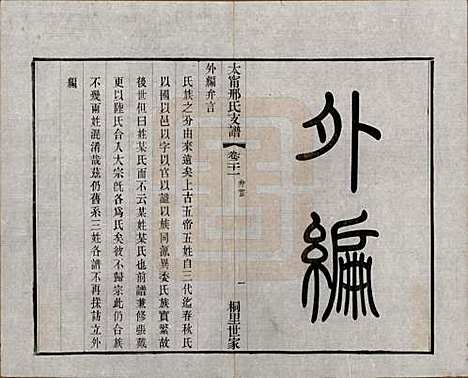 外編
太甯邢氏支譜
卷二十一
弁言
一
桐里世家
外編弁言
氏族之分由來遠矣上古五帝五姓自三代迄春秋氏
以國以邑以字以官以諡以族同源異委氏族實繁故
後世但曰姓某氏而不云某姓某氏也前譜兼修張戴
更以陸氏合入大宗旣各爲氏矣彼不歸宗此仍合族
不幾爾姓混淆哉茲仍舊系三姓各譜不再採訪立外
編